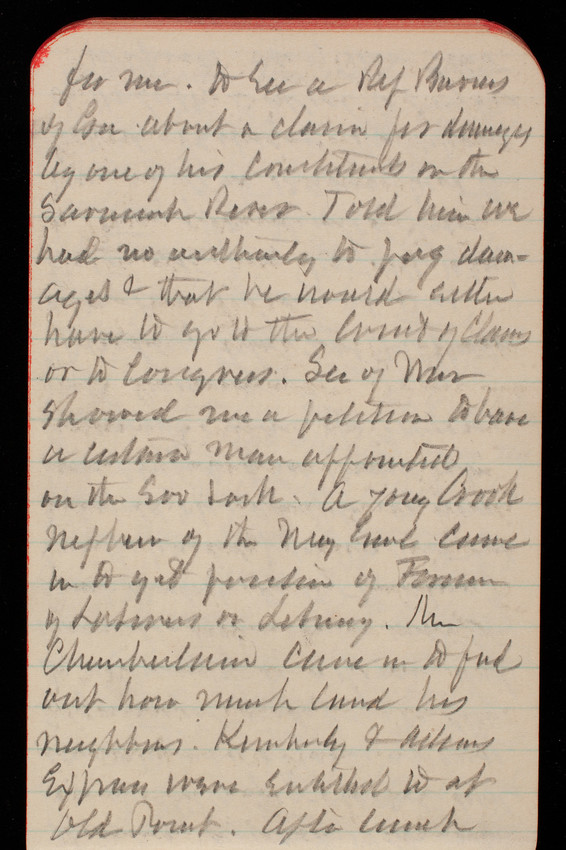 for me. to see a Rep Barnes
of Ga about a claim for damages
by one of his constituents on the
Savannah River. Told him we
had no authority to pay dam-
ages & that he would either
have to go to the Court of Claims
or to Congress. Sec of War
showed me a petition to have
a certain man appointed
on the Soo Lock. A young Crook
nephew of the Maj Genl came
in to get position of Foreman
of Laborers or Library. Mr
Chamberlain came in to find
out how much land his
neighbors. Kimberly & Adams
Express were entitled to at
Old Point. After lunch